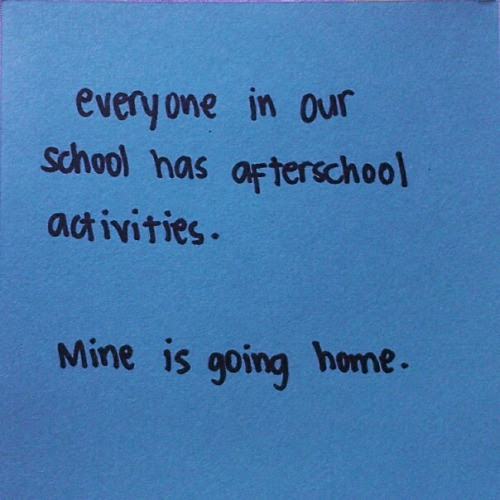 everyone in our
school has afterschool
activities.
Mine is going home.